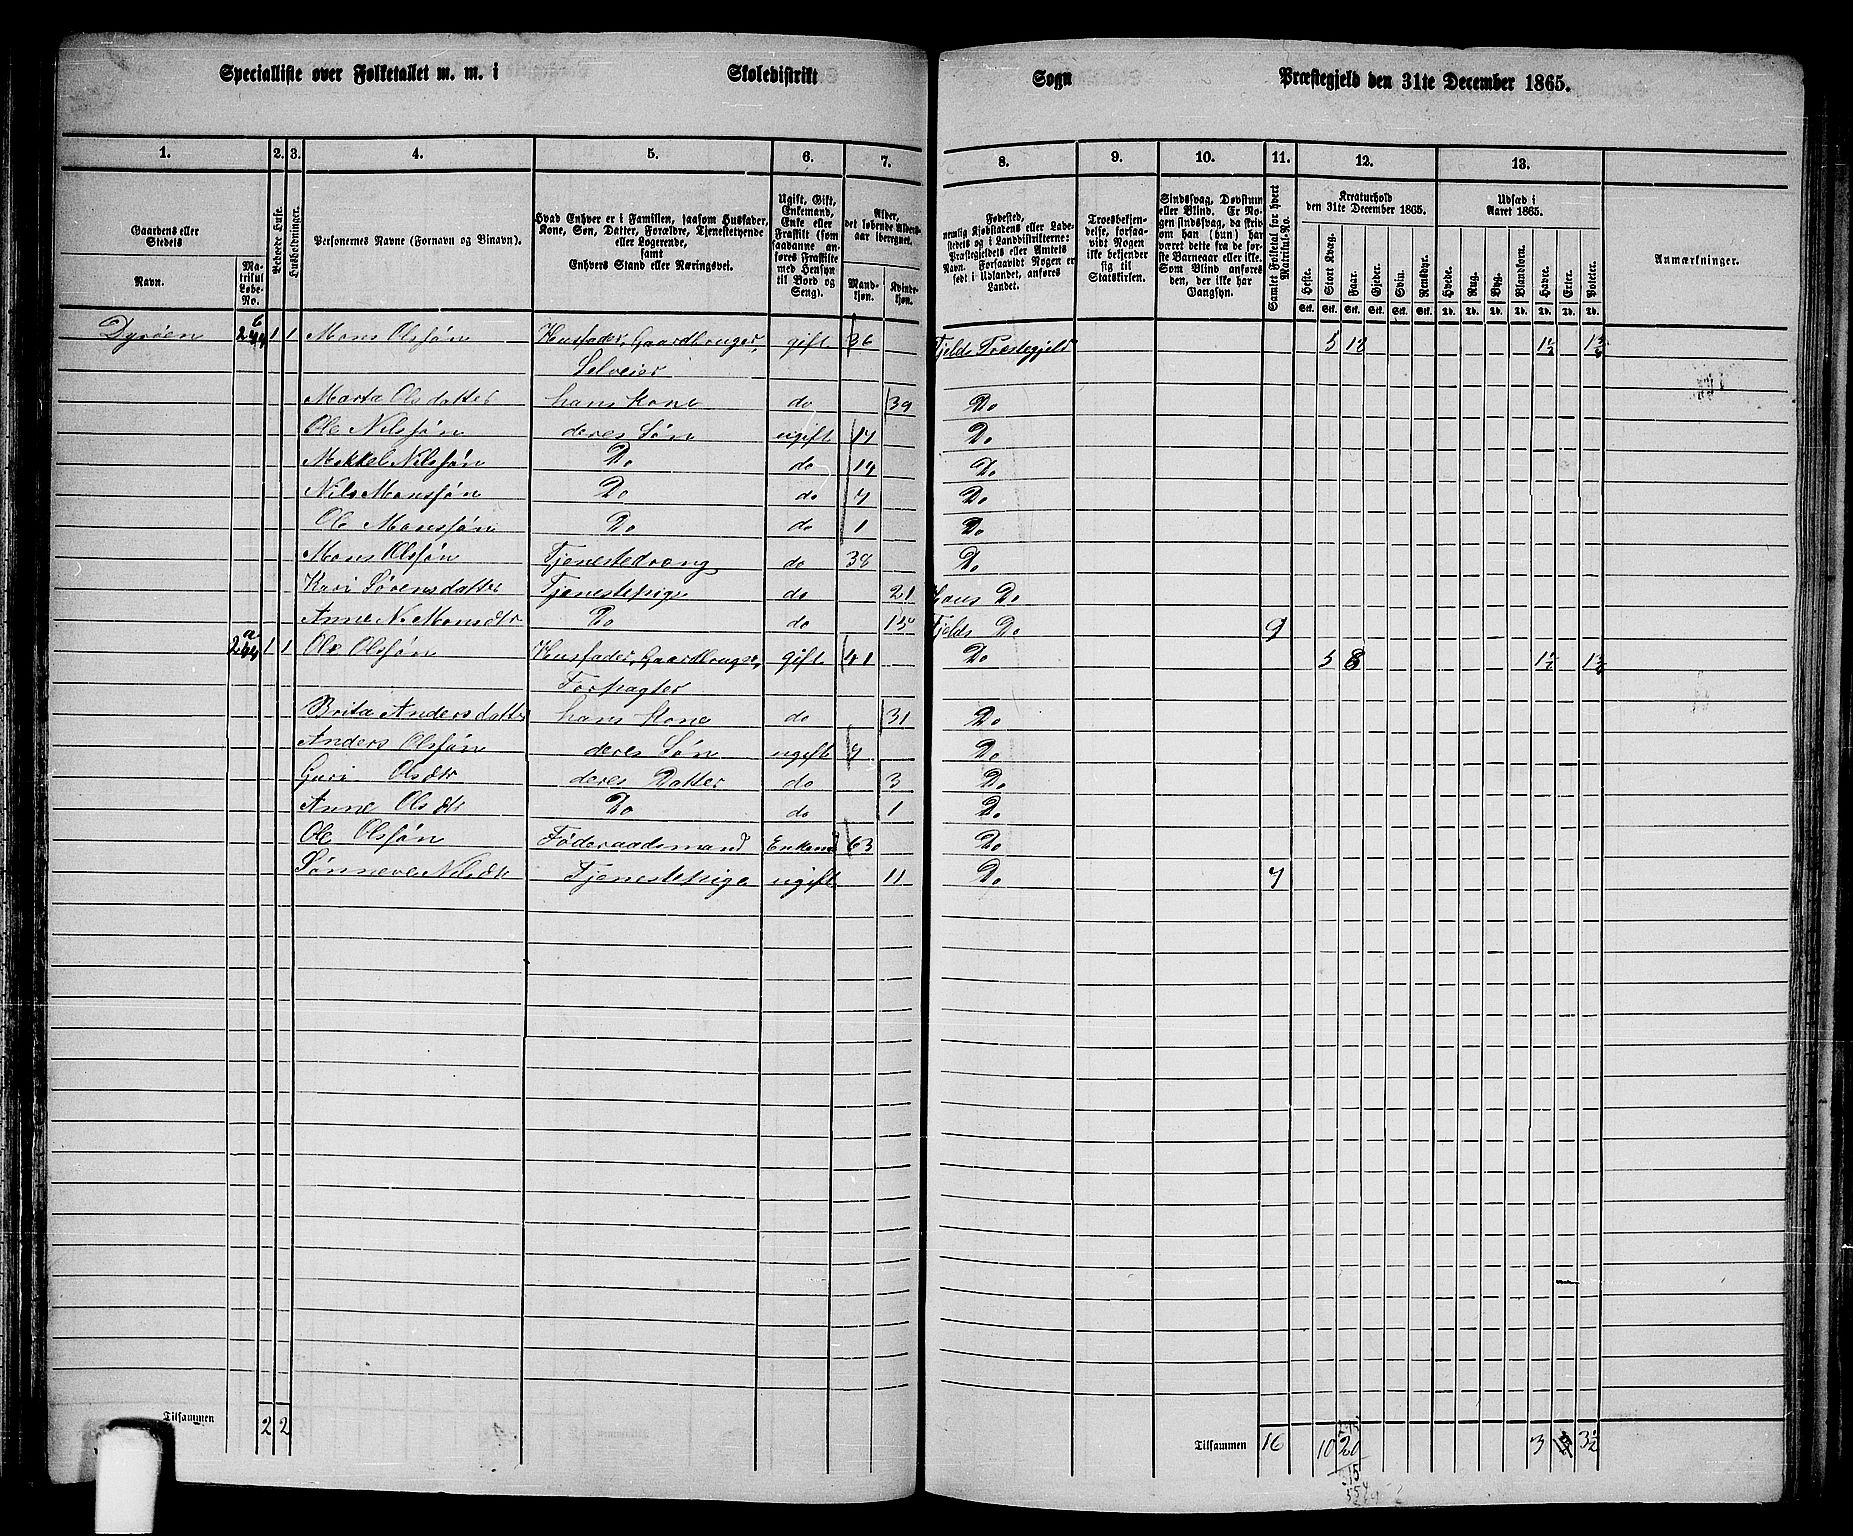 Specialliste over Folketallet m. m. i Skoledistrikt Sogn Præstegjeld den 31te December 1865.
1. 2. 3. 4. 5. 6. 7. 8. 9. 10. 11. 12. 13.
Gaardens eller Stedets
Navn.
Matrikul Løbe-No.
Beboede Huse.
Husholdninger.
Personernes Navne (Fornavn og Binavn).
Hvad Enhver er i Familien, saasom Husfader, Kone, Søn, Datter, Forældre, Tjenestetyende eller Logerende, samt Enhvers Stand eller Næringsvei.
Ugift, Gift, Enkemand, Enke eller Fraskilt (som saadanne anføres Fraskilte med Hensyn til Bord og Seng).
Alder, det løbende Aldersaar iberegnet.
Mandkjøn.
Kvindekjøn.
Fødested, nemlig Kjøbstadens eller Ladestedets og i Landdistrikterne: Præstegjeldets eller Amtets Navn. Forsaavidt Nogen er født i Udlandet, anføres Landet.
Troesbekjendelse, forsaavidt Nogen ikke bekjender sig til Statskirken.
Sindssvag, Døvstum eller Blind. Er Nogen sindssvag, da skrives om han (hun) har været dette fra de første Barneaar eller ikke. Som Blind anføres den, der ikke har Gangsyn.
Samlet Folketal for hvert Matrikul-No.
Kreaturhold den 31te December 1865.
Heste. Stort Kvæg. Faar. Gjeder. Svin. Rensdyr.
Udsæd i Aaret 1865.
Hvede. Rug. Byg. Blandkorn. Havre. Erter. Poteter.
Anmærkninger.
Dyrøen 244 b 1 1 Mons Olsføn Husfader, Gaardbruger, gift 36 Fjelds Præstegjeld 5 12 1½
Selveier
Marta Olsdatter hans Kone do 39 Do
Ole Nilsføn deres Søn ugift 17 Do
Mikkel Nilsføn Do do 14 Do
Nils Monsføn Do do 4 Do
Ole Monsføn Do do 1 Do
Mons Olsføn Tjenestedreng do 38 Do
Kari Sørensdatter Tjenestepige do 21 Haus Do
Anne N. Monsdtr Do do 15 Fjelds Do 9
244 a 1 1 Ole Olsføn Husfader, Gaardbruger, gift 41 Do 5 8 1½
Forpagter
Brita Andersdatter hans Kone do 31 Do
Anders Olsføn deres Søn ugift 9 Do
Guri Olsdtr deres Datter do 3 Do
Anne Olsdtr Do do 1 Do
Ole Olsføn Føderaadsmand Enkemd 63 Do
Sønneve Nilsdtr Tjenestepige ugift 11 Do 7
Tilsammen 2 2 Tilsammen 16 10 20 3 3½